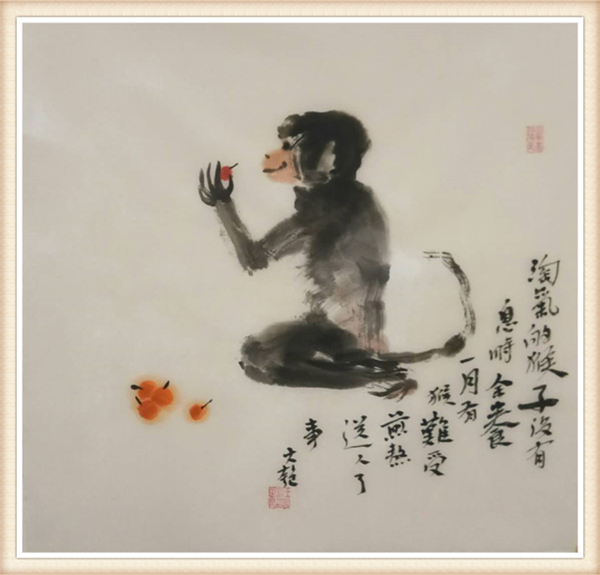 淘氣的猴子沒有
息時余養
一月有
猴難受
煎熬
送人了
事